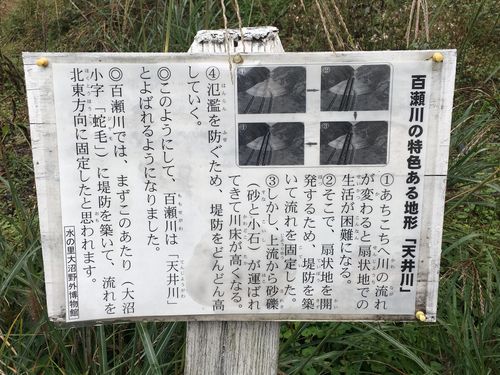 百瀬川の特色ある地形「天井川」
①あちこちへ川の流れ
が変わると扇状地での
生活が困難になる。
②そこで、扇状地を開
発するため、堤防を築
いて流れを固定した。
③しかし、上流から砂礫
(砂と小石)が運ばれ
てきて川床が高くなる。
④氾濫を防ぐため、堤防をどんどん高
していく。
◎このようにして、百瀬川は「天井川」
とよばれるようになりました。
◎百瀬川では、まずこのあたり(大沼
小字「蛇毛」)に堤防を築いて、流れを
北東方向に固定したと思われます。
水の里大沼野外博物館